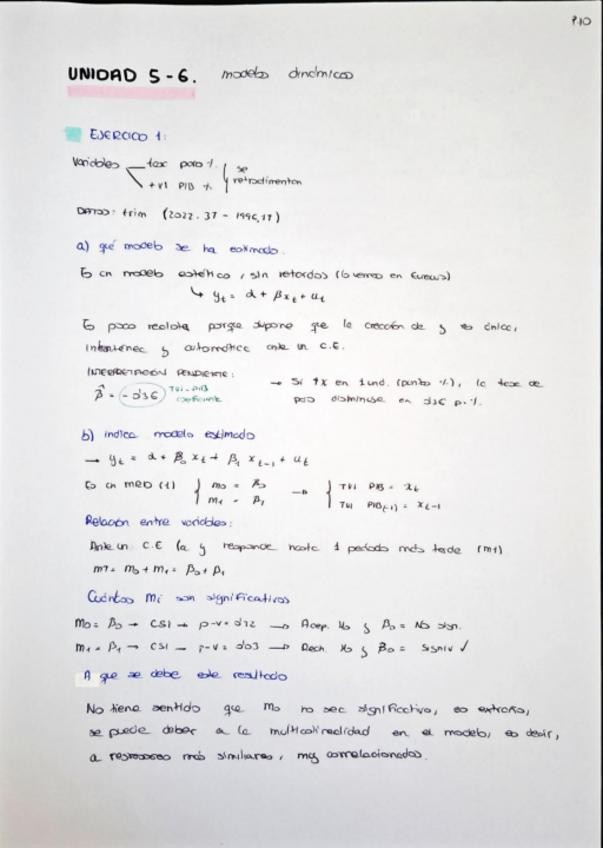 P.10
UNIDAD 5-6. modelos dinámicos
EJERCICIO 1:
Variables tax paro %
+v1 PIB %
se retroalimentan
DATOS: trim (2022.3T - 1996,1T)
a) qué modelo se ha estimado.
Es un modelo estático, sin retardos (lo vemos en Eviews)
↳ yt = α + βxt + ut
Es poco realista porque supone que la reacción de y es única,
instantánea y automática ante un C.E.
INTERPRETACIÓN PENDIENTE:
β̂ = -0'36 TVI-PIB coeficiente
→ Si ↑X en 1 und. (punto %), la tasa de
paro disminuye en 0'36 p.%.
b) indica modelo estimado
→ yt = α + β0 xt + β1 xt-1 + ut
Es un MRD (1) m0 = β0
m1 = β1
→ TVI PIB = xt
TVI PIB(-1) = xt-1
Relación entre variables:
Ante un C.E la y responde hasta 1 período más tarde (m1)
mT = m0 + m1 = β0 + β1
Cuántos mi son significativos
m0 = β0 → CSI → p-v = 0'72 → Acep. H0 y β0 = No sign.
m1 = β1 → CSI → p-v = 0'03 → Rech. H0 y β0 = signiv ✓
A que se debe este resultado
No tiene sentido que m0 no sea significativo, es extraño,
se puede deber a la multicolinealidad en el modelo, es decir,
a regresores más similares, muy correlacionados.